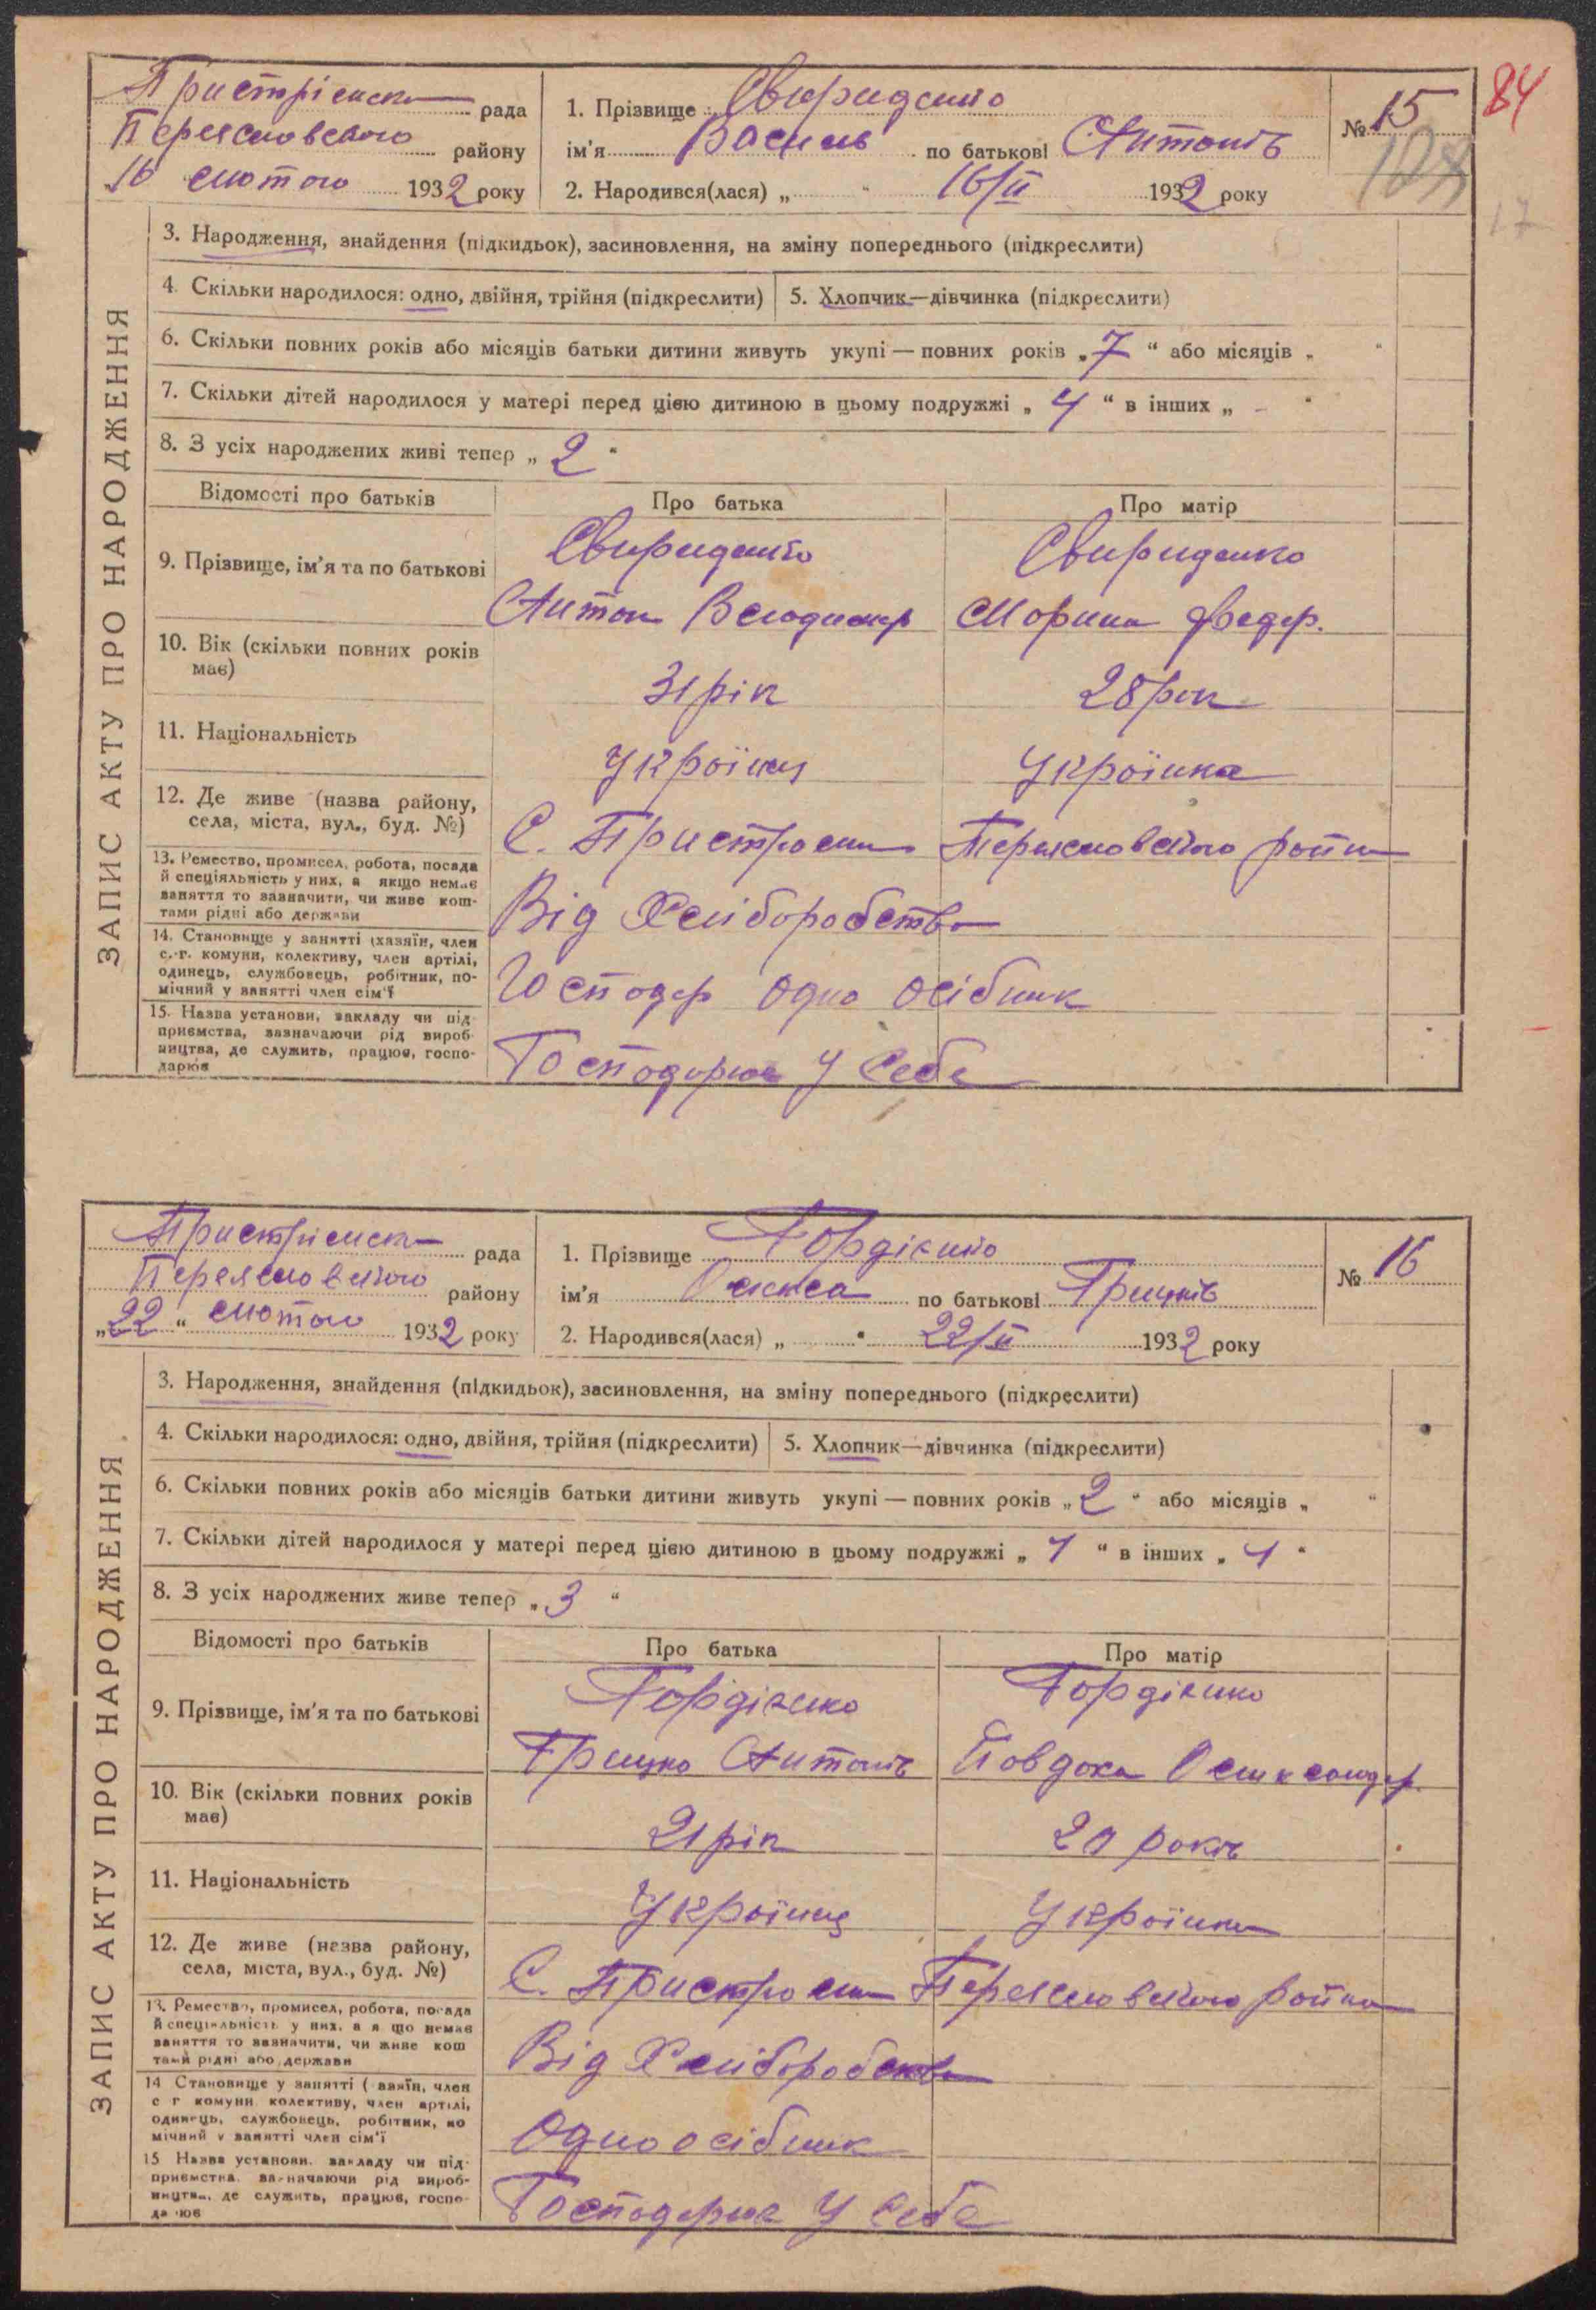 Пристрімска рада
Переяславського району
16 лютого 1932 року
1. Прізвище Свириденко
ім'я Василь по батькові Антонів
2. Народився(лася) „ “ 16/II 1932 року
№ 15
84
17
ЗАПИС АКТУ ПРО НАРОДЖЕННЯ
3. Народження, знайдення (підкидьок), засиновлення, на зміну попереднього (підкреслити)
4. Скільки народилося: одно, двійня, трійня (підкреслити)
5. Хлопчик—дівчинка (підкреслити)
6. Скільки повних років або місяців батьки дитини живуть укупі — повних років „ 7 “ або місяців „ “
7. Скільки дітей народилося у матері перед цією дитиною в цьому подружжі „ 4 “ в інших „ - “
8. З усіх народжених живі тепер „ 2 “
Відомості про батьків
Про батька
Про матір
9. Прізвище, ім'я та по батькові
Свириденко
Антон Володимер
Свириденко
Морина Федер.
10. Вік (скільки повних років
має)
31 рік
28 рок
11. Національність
Українец
Українка
12. Де живе (назва району,
села, міста, вул., буд. №)
С. Пристроми Переясловского район
13. Ремество, промисел, робота, посада
й спеціяльність у них, а якщо немає
заняття то зазначити, чи живе кош-
тами рідні або держави
Від Хліборобства
14. Становище у занятті (хазяїн, член
с.-г. комуни, колективу, член артілі,
одинець, службовець, робітник, по-
мічний у занятті член сім'ї
Господар одно осібник
15. Назва установи, закладу чи під-
приємства, зазначаючи рід вироб-
ництва, де служить, працює, госпо-
дарює
Господорює у себе
Пристрімска рада
Переясловского району
„ 22 “ лютого 1932 року
1. Прізвище Гордієнко
ім'я Олекса по батькові Грицків
2. Народився(лася) „ “ 22/II 1932 року
№ 16
ЗАПИС АКТУ ПРО НАРОДЖЕННЯ
3. Народження, знайдення (підкидьок), засиновлення, на зміну попереднього (підкреслити)
4. Скільки народилося: одно, двійня, трійня (підкреслити)
5. Хлопчик—дівчинка (підкреслити)
6. Скільки повних років або місяців батьки дитини живуть укупі — повних років „ 2 “ або місяців „ “
7. Скільки дітей народилося у матері перед цією дитиною в цьому подружжі „ 1 “ в інших „ 1 “
8. З усіх народжених живе тепер „ 3 “
Відомості про батьків
Про батька
Про матір
9. Прізвище, ім'я та по батькові
Гордієнко
Грицко Антонів
Гордієнко
Повдока Олександр.
10. Вік (скільки повних років
має)
21 рік
20 років
11. Національність
Українец
Українка
12. Де живе (назва району,
села, міста, вул., буд. №)
С. Пристроми Переясловского район
13. Ремество, промисел, робота, посада
й спеціяльність у них, а якщо немає
заняття то зазначити, чи живе кош
тами рідні або держави
Від Хліборобства
14 Становище у занятті (хазяїн, член
с г комуни колективу, член артілі,
одинець, службовець, робітник, по
мічний у занятті член сім'ї
Одноосібник
15 Назва установи, закладу чи під-
приємства, зазначаючи рід вироб-
ництва, де служить, працює, госпо-
дарює
Господорює у себе